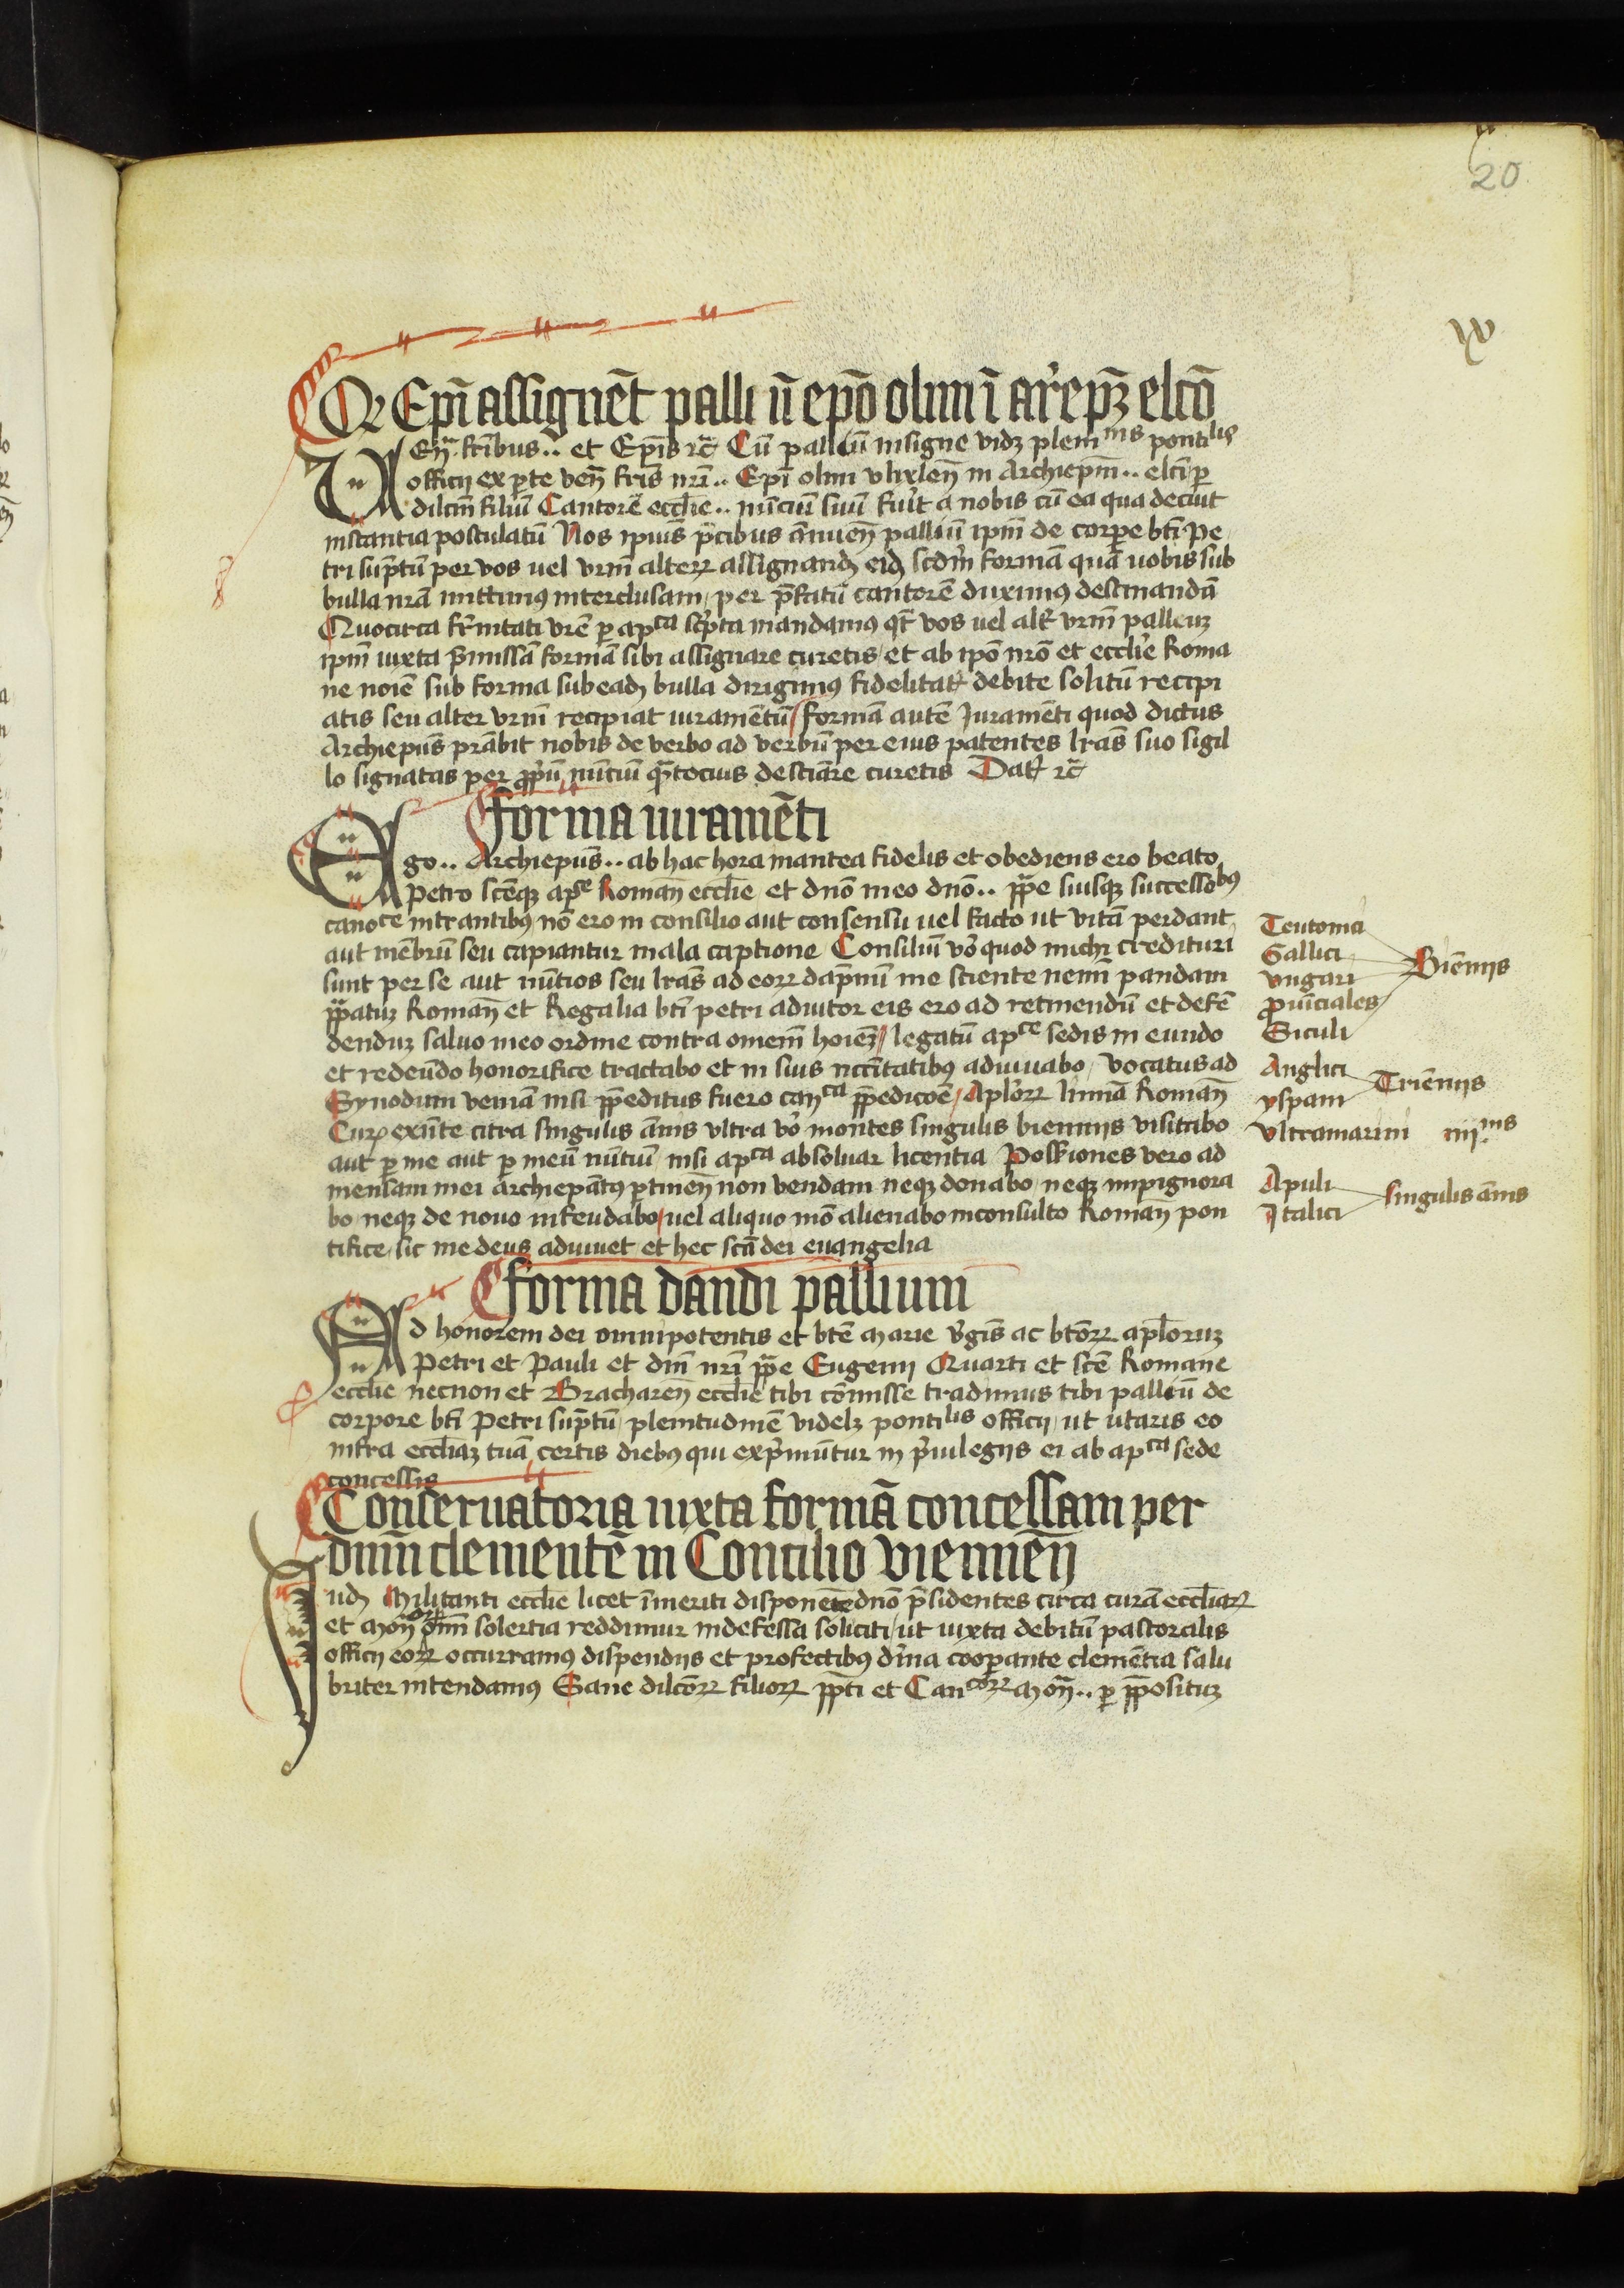 20
xv
Qƺ Epī assignēt palliū epō olim ī ar̄epꝫ eltō
Uen̄. fribus.. et Ep̄is ⁊c̄ Cū palliū insigne vidꝫ pleni^nis ponti^lis
officij ex pte ven̄ fris nr̄i.. Ep̄i olim vlixlen̄ in Archiepm̄.. eltī p
dilcm̄ filiū Cantorē eccl̄ie.. nūciū suū fuit a nobis cū ea qua decuit
instantia postulatū Nos ipius p̄cibus ānuen̄ palliū ip̄m de corꝑe bt̄i Pe
tri sūptū per vos uel vr̄m alterꝝ assignandꝫ eidꝫ scdm̄ formā quā uobis sub
bulla nr̄a mittimꝰ interclusam, per p̄fatū cantorē duximꝰ destinandā
Quocirca fr̄nitati vr̄e ꝑ ap^ca sc̄pta mandamꝰ qt̄ vos uel alr̄ vr̄m palleuꝫ
ip̄m iuxta p̄missā formā sibi assignare curetis, et ab ipō nr̄o et eccl̄ie Roma
ne noīe sub forma sub eadꝫ bulla dirigimꝰ fidelitatꝭ debite solitū recipi
atis seu alter vr̄m recipiat iuramētū, formā autē Iuramēti quod dictus
Archiepūs prābit nobis de verbo ad verbū per eius patentes lr̄as suo sigil
lo signatas per ꝓpriū nūtiū qn̄tocius destiāre curetis Datꝭ ⁊c̄
forma iuramēti
Ego.. Archiepūs.. ab hac hora inantea fidelis et obediens ero beato
Petro sc̄eqꝫ ap^ce Roman̄ eccl̄ie, et dn̄o meo dn̄o.. pp̄e suisqꝫ successo^bꝰ
cano^ce intrantibꝰ nō ero in consilio aut consensu uel facto ut vitā perdant,
aut mēbrū seu capiantur mala captione Consiliū v̄o quod michi credituri
sunt per se aut nūtios seu lr̄as ad eorꝝ dāpnū me sciente nemī pandam
pp̄atuꝫ Roman̄ et Regalia bt̄i petri adiutor eis ero ad retinendū et defē
denduꝫ saluo meo ordine contra omnem̄ hoīeꝫ, legatū ap^ce sedis in eundo
et redeūdo honorifice tractabo et in suis nccītatibꝰ adiuuabo, vocatus ad
Synodum veniā nisi pp̄editus fuero can^ca pp̄edicōe, Ap̄lorꝝ limīa Roman̄
Curꝭ existēte citra singulis ānis vltra v̄o montes singulis biennijs visitabo
aut ꝑ me aut ꝑ meū nūtiū, nisi ap^ca absoluar licentia Poss̄iones vero ad
mensam mei archiepātꝰ ꝑtinen̄ non vendam neqꝫ donabo, neqꝫ inpignora
bo, neqꝫ de nouo infeudabo, uel aliquo mō alienabo inconsulto Roman̄ pon
tifice, sic me deus adiuuet et hec scā dei euangelia
Teutonia
Gallici
vngari
ꝓuīciales
Siculi
Biēnijs
Anglici
yspani
Triēnijs
vltramarini iiij^nis
Apuli
Italici
singulis ānis
forma dandi pallium
Ad honorem dei omnipotentis et btē Marie v̄gīs ac btōrꝝ apl̄oruꝫ
Petri et Pauli et dn̄i nr̄i pp̄e Eugenij Quarti et sc̄e Romane
eccl̄ie necnon et Bracharen̄ eccl̄ie tibi cōmisse tradimus tibi palliū de
corpore bt̄i Petri sūptū, plenitudinē videlꝫ ponti^lis officij, ut utaris eo
infra eccl̄iaꝫ tuā certis diebꝰ qui exp̄muntur in p̄iulegijs ei ab ap^ca sede
concessis
Conseruatoria iuxta formā concessam per
dnm̄ clementē in Concilio viennen̄
Iudꝫ Militanti eccl̄ie licet īmeriti disponente dn̄o p̄sidentes circa curā eccl̄iarꝝ
et Mon̄^orꝝ oīm̄ solertia reddimur indefessa soliciti, ut iuxta debitū pastoralis
officij eorꝝ occurramꝰ dispendijs et profectibꝰ d̄ina cooꝑante clemētia salu
briter intendamꝰ Sane dilcōrꝝ filiorꝝ pp̄ti et Can^corꝝ Mon̄.. ꝑ pp̄ositūꝫ